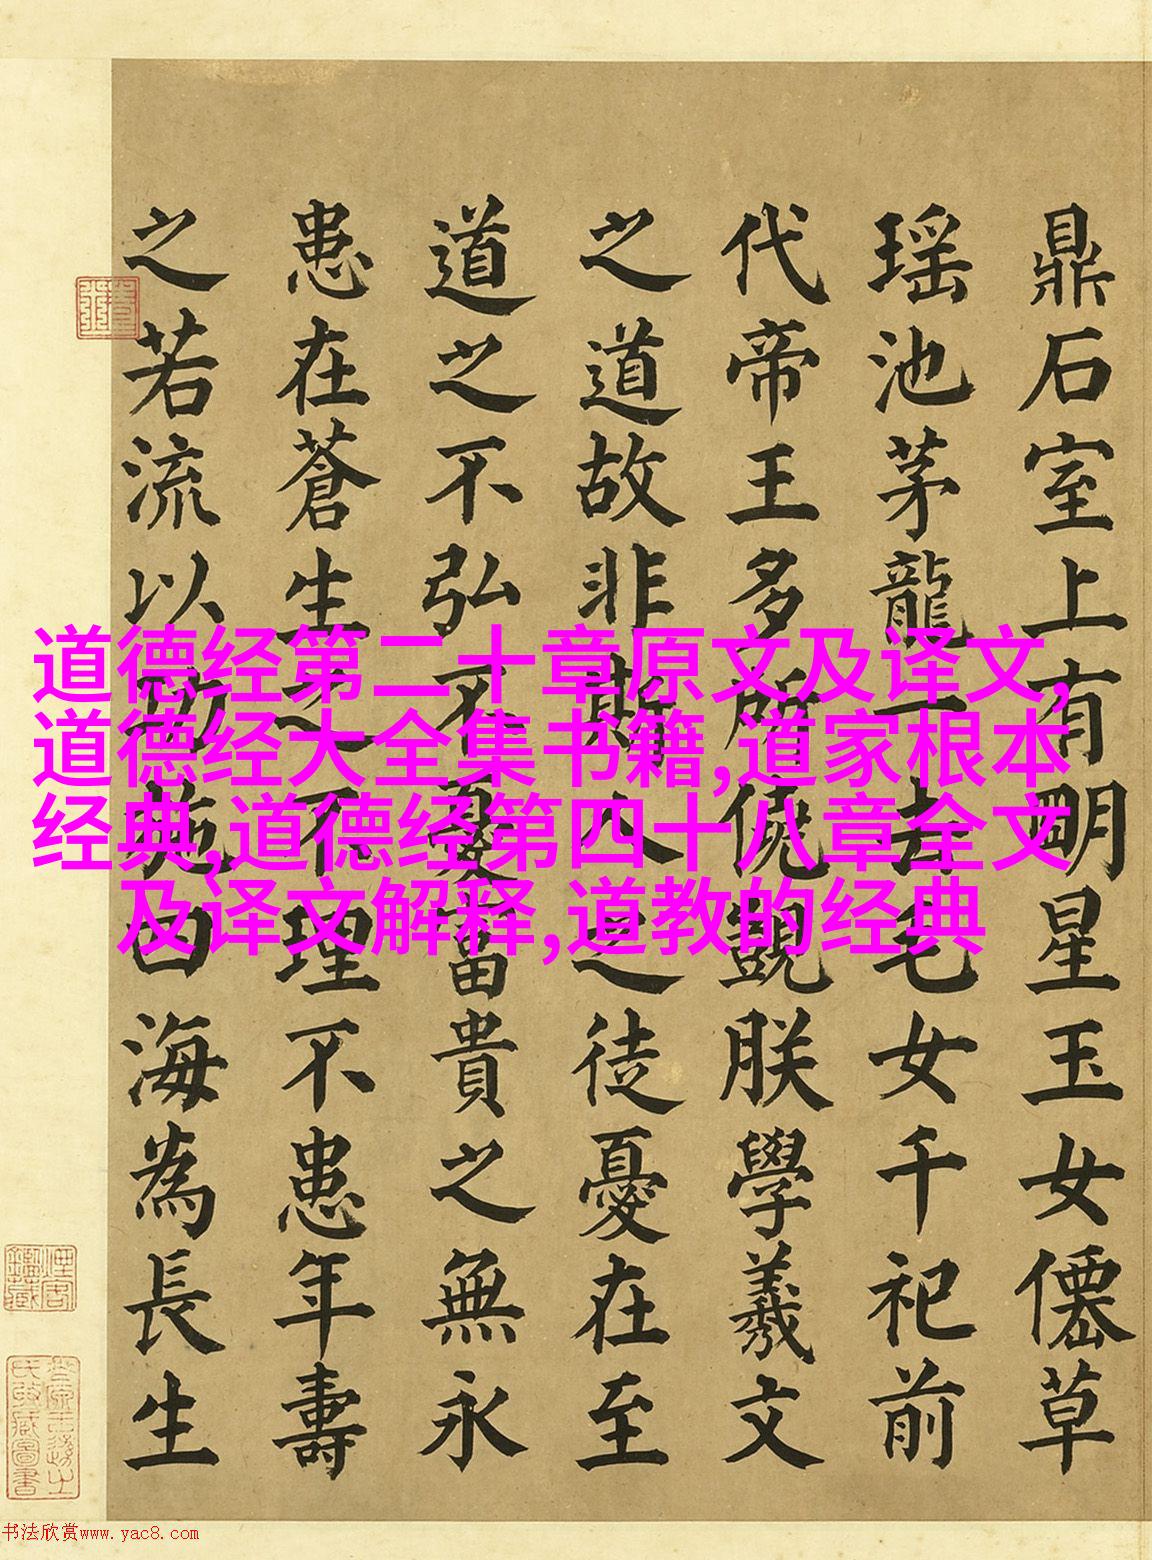 鼎石室上有明星玉女僊草
瑶池茅龍一去毛女千祀前
代帝王多所僥覬朕學羲文
之道故非斯人之徒憂在至
道之不弘不憂富貴之無永
患在蒼生之不理不患年壽
之若流以施四海為長生
道德经第二十章原文及译文,
道德经大全集书籍,道家根本
经典,道德经第四十八章全文
及译文解释,道教的经典
书法欣赏www.yac8.com